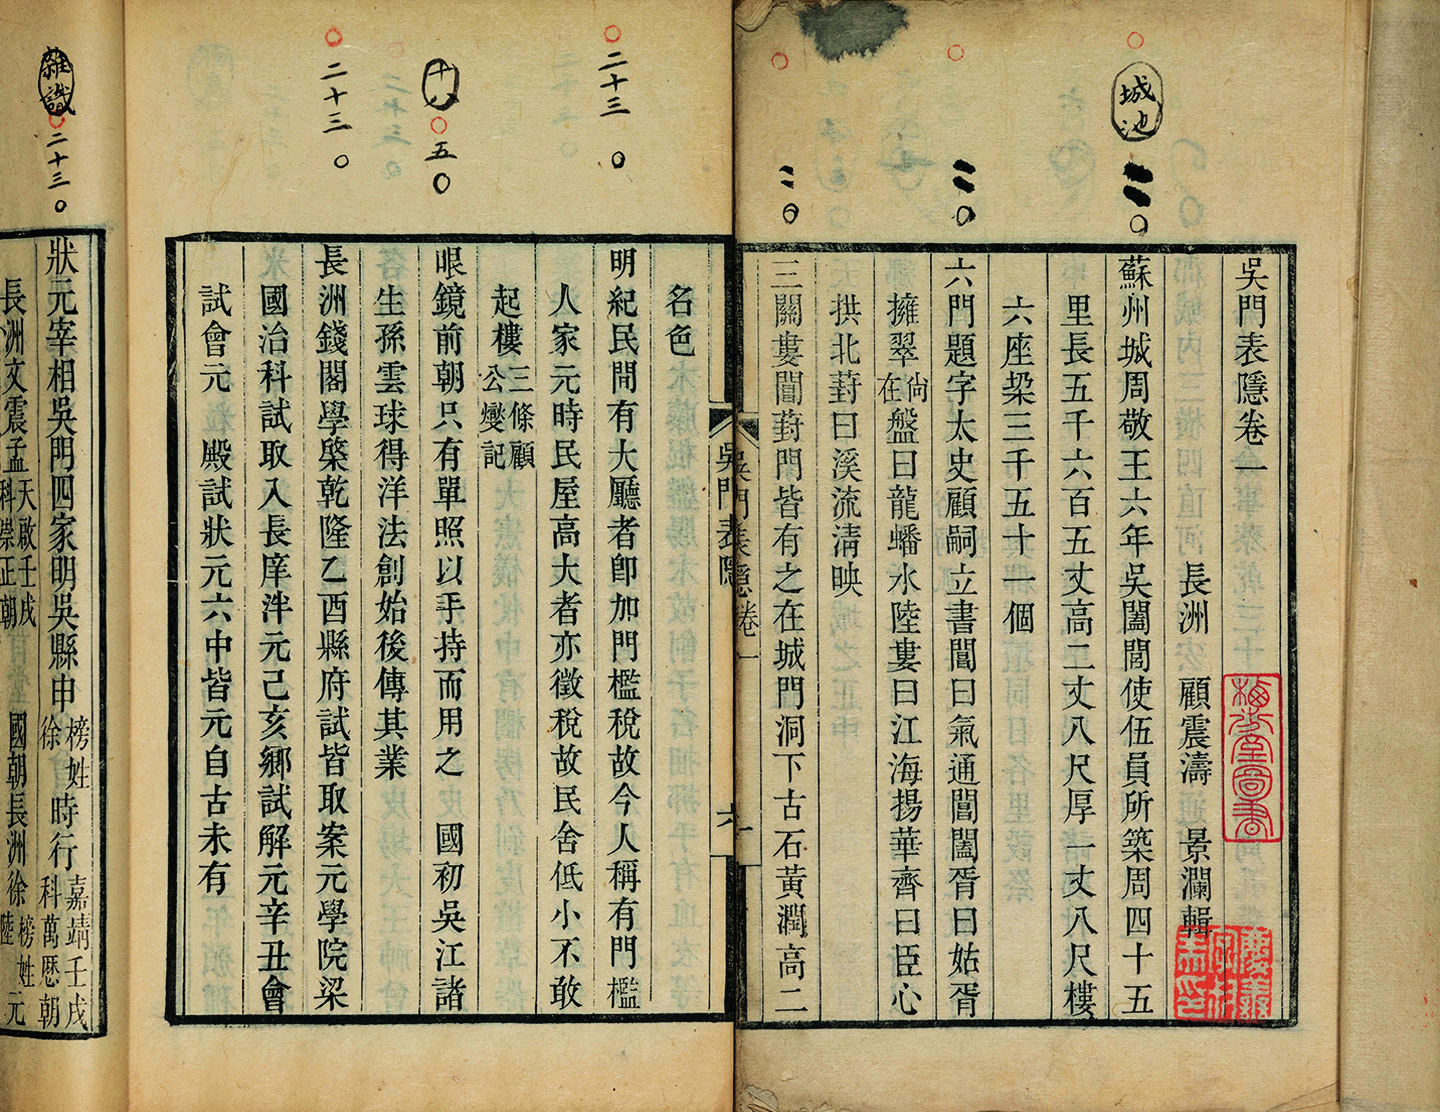 城池
二〇
二〇
二〇
吳門表隱卷一
長洲　顧震濤　景瀾輯
蘇州城周敬王六年吳闔閭使伍員所築周四十五
里長五千六百五丈高二丈八尺厚一丈八尺樓
六座梁三千五十一個
六門題字太史顧嗣立書閶曰氣通閶闔胥曰姑胥
擁翠尙在盤曰龍蟠水陸婁曰江海揚華齊曰臣心
拱北葑曰溪流清映
三關婁閶葑門皆有之在城門洞下古石黃潤高二
吳門表隱卷一
一
二十三〇
十八
五〇
二十三〇
吳門表隱
六
名色
明紀民間有大廳者卽加門檻稅故今人稱有門檻
人家元時民屋高大者亦徵稅故民舍低小不敢
起樓三條顧公燮記
眼鏡前朝只有單照以手持而用之　國初吳江諸
生孫雲球得洋法創始後傳其業
長洲錢閣學棨乾隆乙酉縣府試皆取案元學院梁
國治科試取入長庠泮元己亥鄉試解元辛丑會
試會元　殿試狀元六中皆元自古未有
雜識
二十三〇
狀元宰相吳門四家明吳縣申榜姓徐時行嘉靖壬戌科萬厯朝
長洲文震孟天啟壬戌科崇正朝　國朝長洲徐榜姓陸元